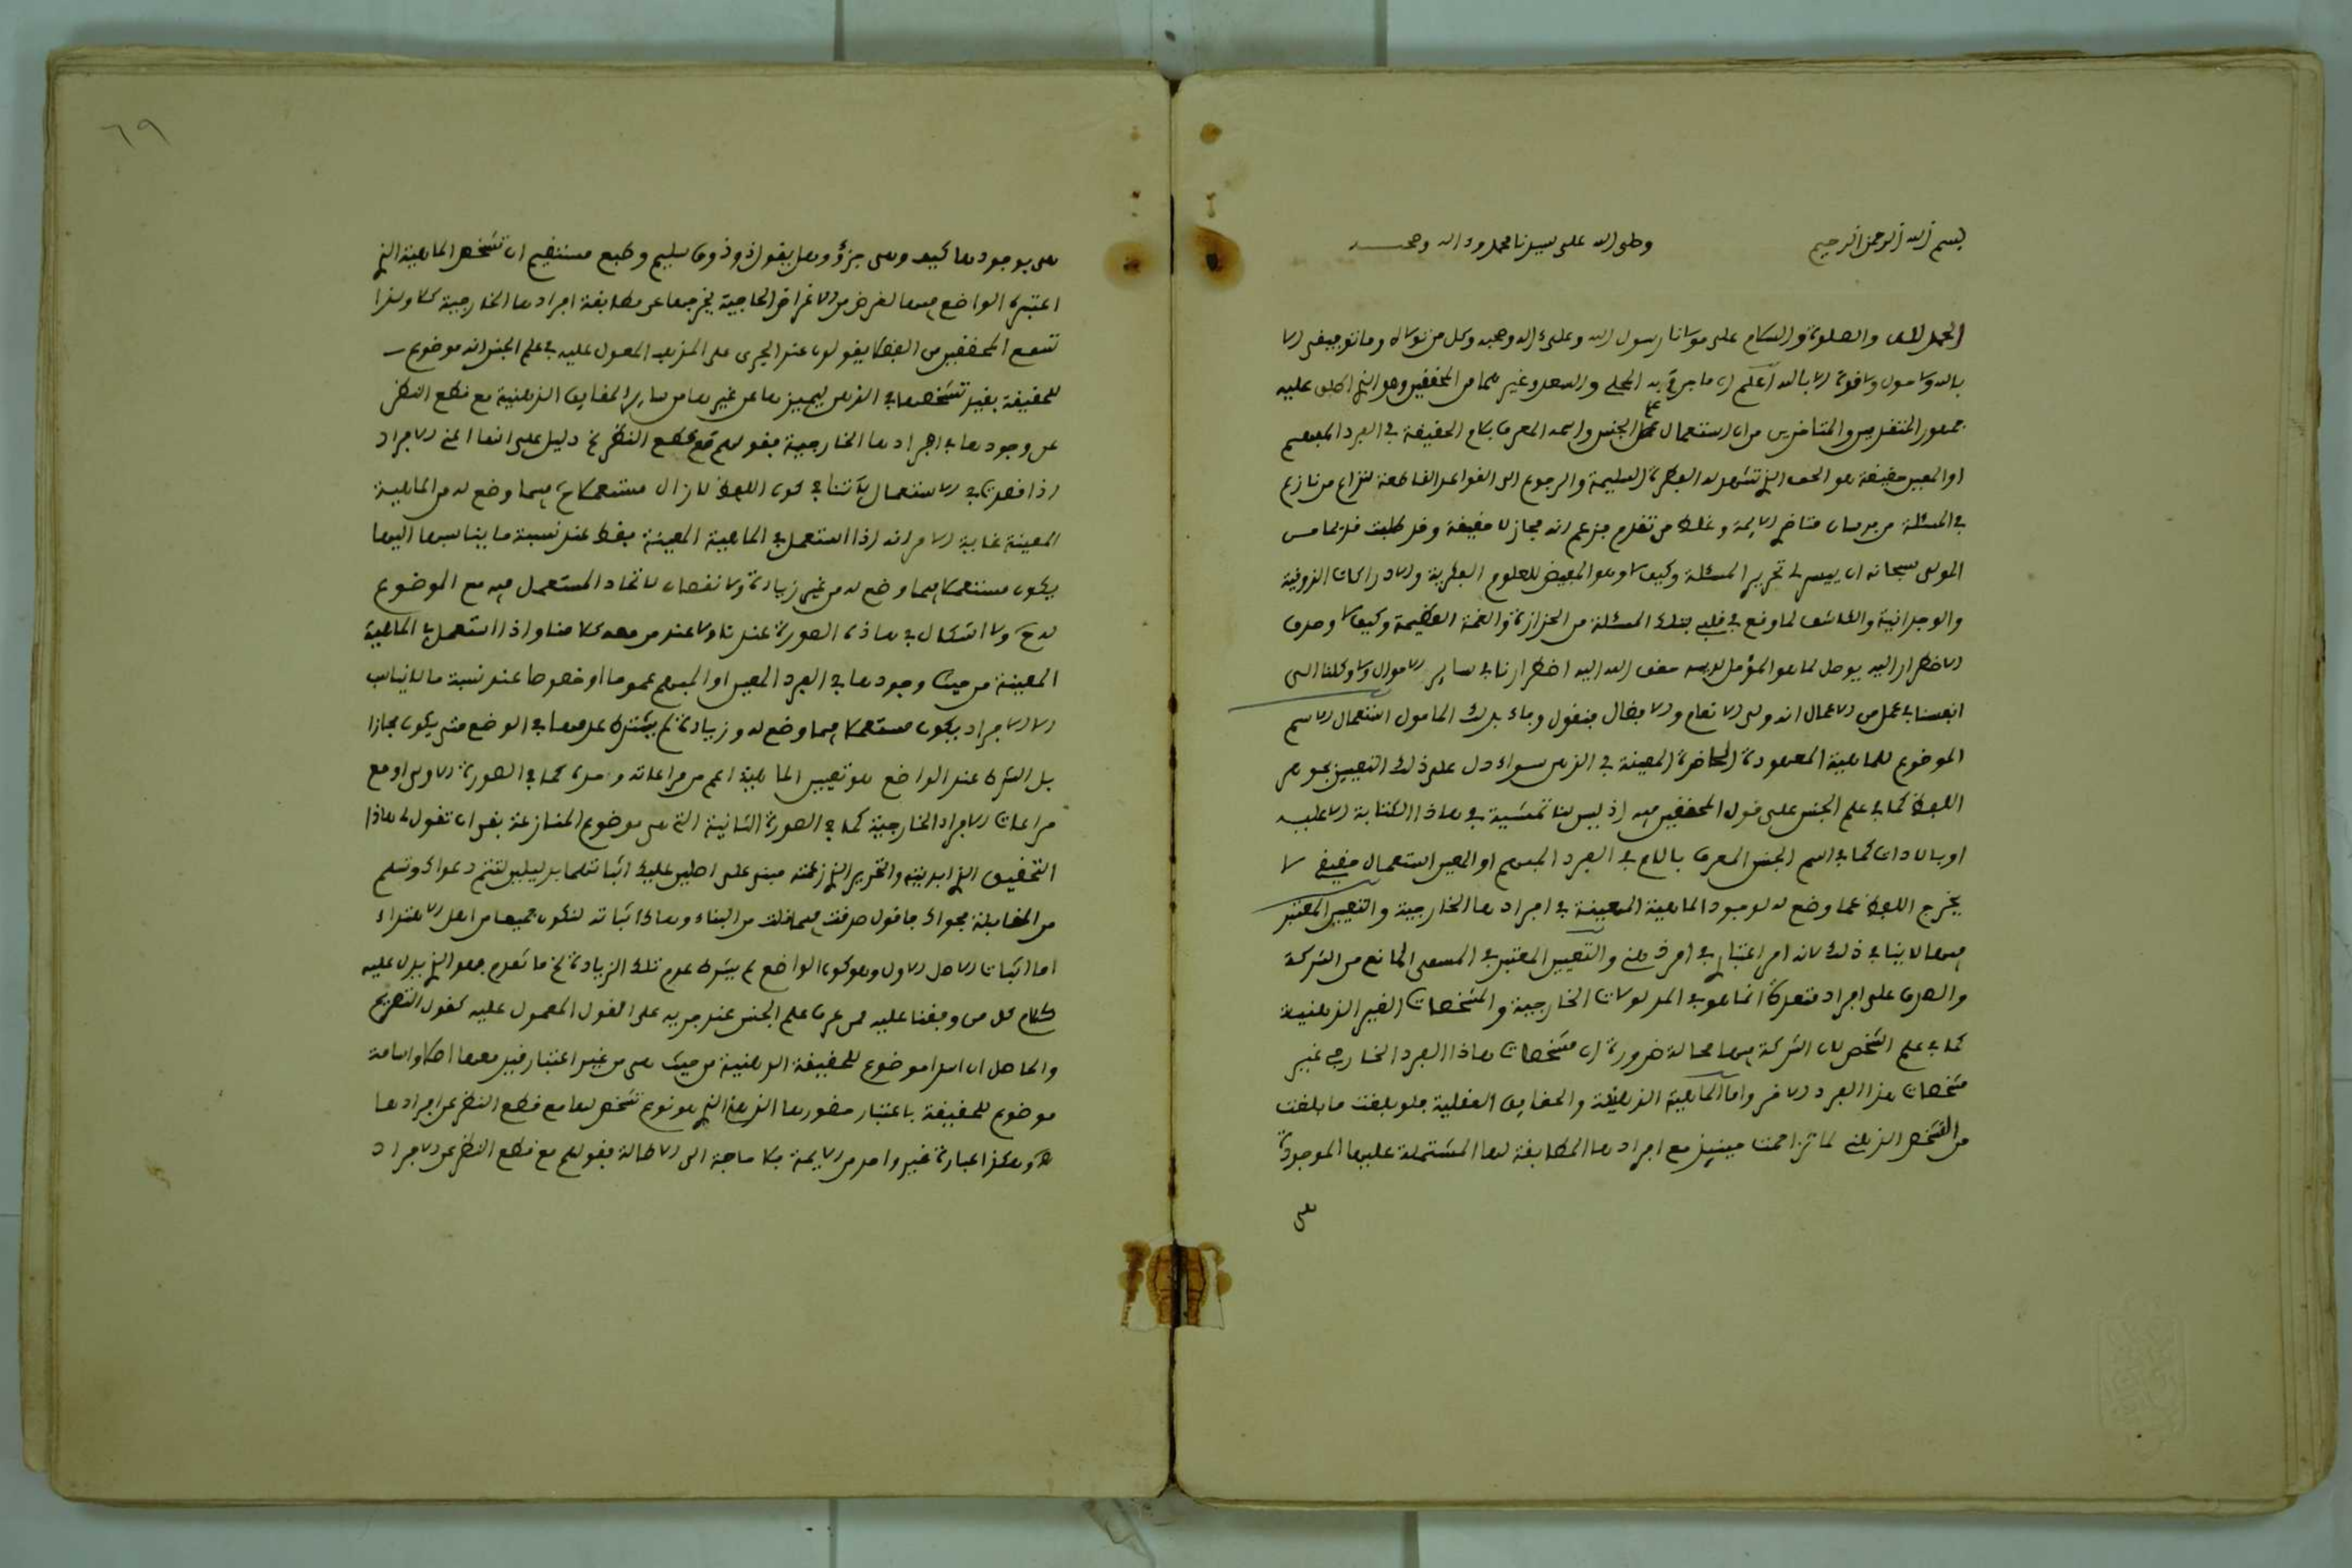 بسم الله الرحمن الرحيم وصلى الله على سيدنا محمد وءاله وصحبه
الحمد لله والصلوة والسلام على مولانا رسول الله وعلى ءاله وصحبه وكل من توالاه وما توفيقى الا
بالله ولا حول ولا قوة الا بالله اعلم ان ما جرى به المحلى والسعد وغيرهما من المحققين وهو الذى اطبق عليه
جمهور المتقدمين والمتاخرين من ان استعمال علم الجنس واسمه المعرف بلام الحقيقة في الفرد المبهم
او المعين حقيقة هو الحق الذى تشهد له الفطرة السليمة والرجوع الى القواعد القاطعة لنزاع من نازع
في المسئلة من فرسان متاخرى الايمة وغلط من تقدم بزعم انه مجاز لا حقيقة وقد طلبت قديما من
المولى سبحانه ان ييسر لى تحرير المسئلة وكيف لا وهو المفيض للعلوم الفكرية والادراكات الذوقية
والوجدانية والكاشف لما وقع في قلبى بتلك المسئلة من الحزازة والغمة العظيمة وكيف لا وصدق
الاضطرار اليه يوصل لما هو المؤمل لديه حقق الله اليه اضطرارنا في ساير الاحوال ولا وكلنا الى
انفسنا في عمل من الاعمال انه ولى الانعام والافضال فنقول وفاء بذلك المامول استعمال الاسم
الموضوع للماهية المعهودة الحاضرة المعينة في الذهن سواء دل على ذلك التعيين بجوهر
اللفظ كما في علم الجنس على قول المحققين فيه اذ ليس لنا تمشية في هاذا الكتابة الا عليه
او بالاداة كما في اسم الجنس المعرف باللام في الفرد المبهم او المعين استعمال حقيقى لا
يخرج اللفظ عما وضع له لوجود الماهية المعينة في افرادها الخارجية والتعيين المعتبر
فيها لا ينافي ذلك لانه امر اعتبارى في امر ذهنى والتعيين المعتبر في المسمى المانع من الشركة
والصدق على افراد متعددة انما هو في المدلولات الخارجية والمشخصات الغير الذهنية
كما في علم الشخص لان الشركة فيها محالة ضرورة ان مشخصات هاذا الفرد الخارجى غير
مشخصات هذا الفرد الاخر واما الماهية الذهنية والحقايق العقلية فلو بلغت ما بلغت
من التشخص الذهنى لما تزاحمت حينيذ مع افرادها المطابقة لها المشتملة عليها الموجودة
هى
٦٩
هى بوجودها كيف وهى جزؤ وهل يقول ذو ذوق سليم وطبع مستقيم ان تشخص الماهية الذى
اعتبره الواضع فيها لغرض من الاغراض الحاجية يخرجها عن مطابقة افرادها الخارجية كلا ولهذا
تسمع المحققين من الفضلا يقولون عند الجرى على المذهب المعول عليه في علم الجنس انه موضوع
للحقيقة بقيد تشخصها في الذهن ليميزها عن غيرها من ساير الحقايق الذهنية مع قطع النظر
عن وجودها في افرادها الخارجية فقولهم مع قطع النظر الخ دليل على انها اعنى الافراد
اذا قصدت في الاستعمال لا تنافي كون اللفظ لا زال مستعملا فيما وضع له من الماهية
المعينة غاية الامر انه اذا استعمل في الماهية المعينة فقط عند نسبة ما يناسبها اليها
يكون مستعملا فيما وضع له من غير زيادة ولا نقصان لاتحاد المستعمل فيه مع الموضوع
له ح ولا اشكال في هاذه الصورة عندنا ولا عند من معه كلامنا واذا استعمل في الماهية
المعينة من حيث وجودها في الفرد المعين او المبهم عموما او خصوصا عند نسبة ما لا يناسب
الا الافراد يكون مستعملا فيما وضع له وزيادة لم يشترط عدمها في الوضع حتى يكون مجازا
بل الشرط عند الواضع هو تعيين الماهية اعم من مراعاته وحده كما في الصورة الاولى او مع
مراعات الافراد الخارجية كما في الصورة الثانية التى هى موضوع المنازعة بقى ان تقول لى هاذا
التحقيق الذى ابديته والتحرير الذى زعمته مبنى على اصلين عليك اثباتهما بدليلين لتتم دعواك وتسلم
من المقابلة فجوابك فاقول صدقت فيما قلت من البناء وهاك اثباته لتكون جميعا من اهل الاهتداء
اما اثبات الاصل الاول وهو كون الواضع لم يشرط عدم تلك الزيادة الخ ما تقدم فهو الذى يدل عليه
كلام كل من وقفنا عليه لمن عرف علم الجنس عند جريه على القول المعمول عليه كقول التصريح
والحاصل ان اسدا موضوع للحقيقة الذهنية من حيث هى من غير اعتبار قيد معها اصلا واسامة
موضوع للحقيقة باعتبار حضورها الذهنى الذى هو نوع تشخص لها مع قطع النظر عن افرادها
ه وهكذا عبارة غير واحد من الايمة فلا حاجة الى الاطالة فقولهم مع قطع النظر عن الافراد